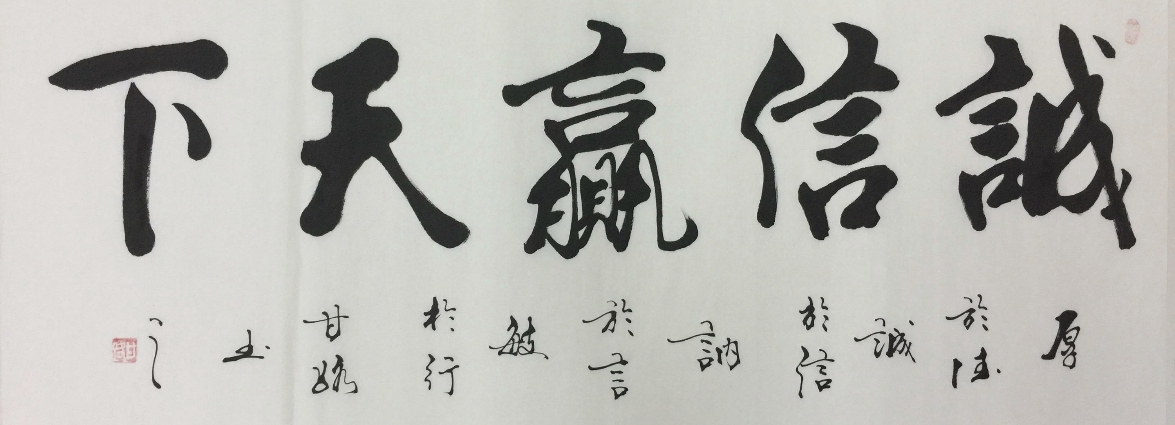 誠信贏天下
厚
於德
誠
於信
訥
於言
敏
於行
甘
书
之